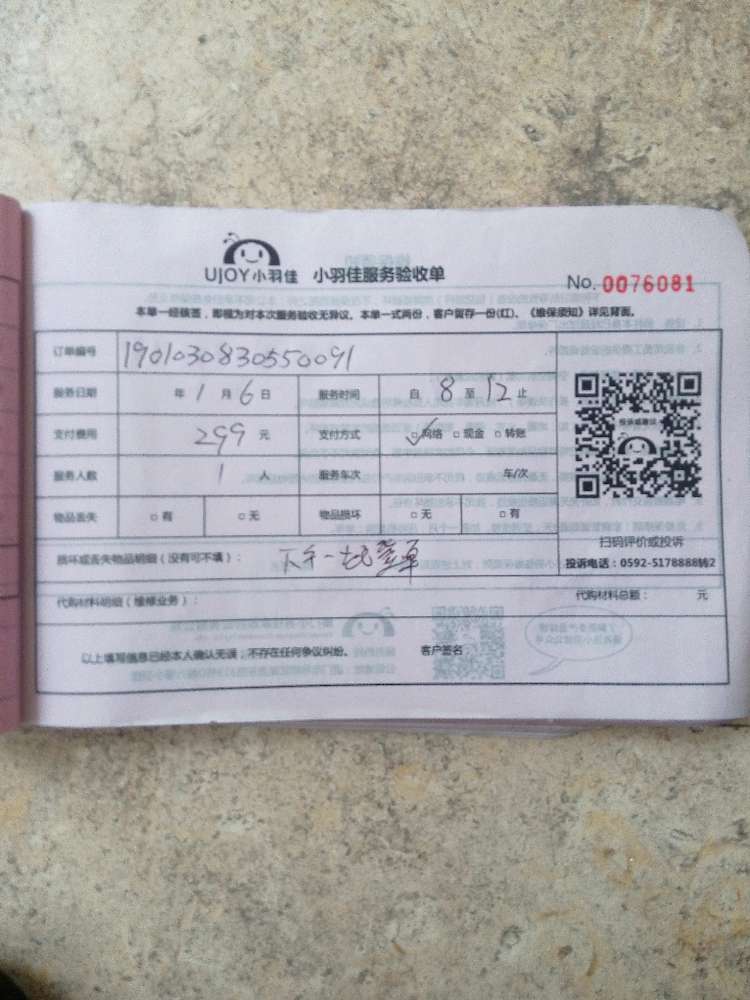 UJOY小羽佳 小羽佳服务验收单
No. 0076081
本单一经核签，即视为对本次服务验收无异议。本单一式两份，客户留存一份(红)。《维保须知》详见背面。
订单编号 190103083055 0091
服务日期 年 1 月 6 日 服务时间 自 8 至 12 止
支付费用 299 元 支付方式 ☑网络 □现金 □转账
服务人数 1 人 服务车次 车/次
物品丢失 □有 □无 物品损坏 □无 □有
投诉或建议
扫码评价或投诉
投诉电话：0592-5178888转2
损坏或丢失物品明细（没有可不填）： 下午一起签单
代购材料明细（维修业务）： 代购材料总额： 元
以上填写信息已经本人确认无误，不存在任何争议纠纷。 客户签名：